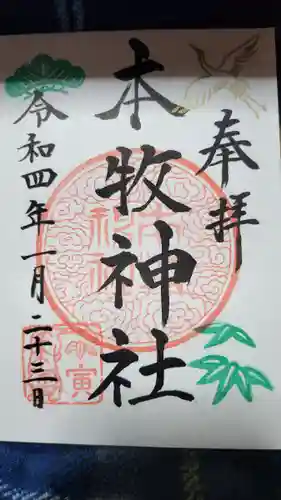 奉拝
本牧神社
令和四年一月二十三日
寅